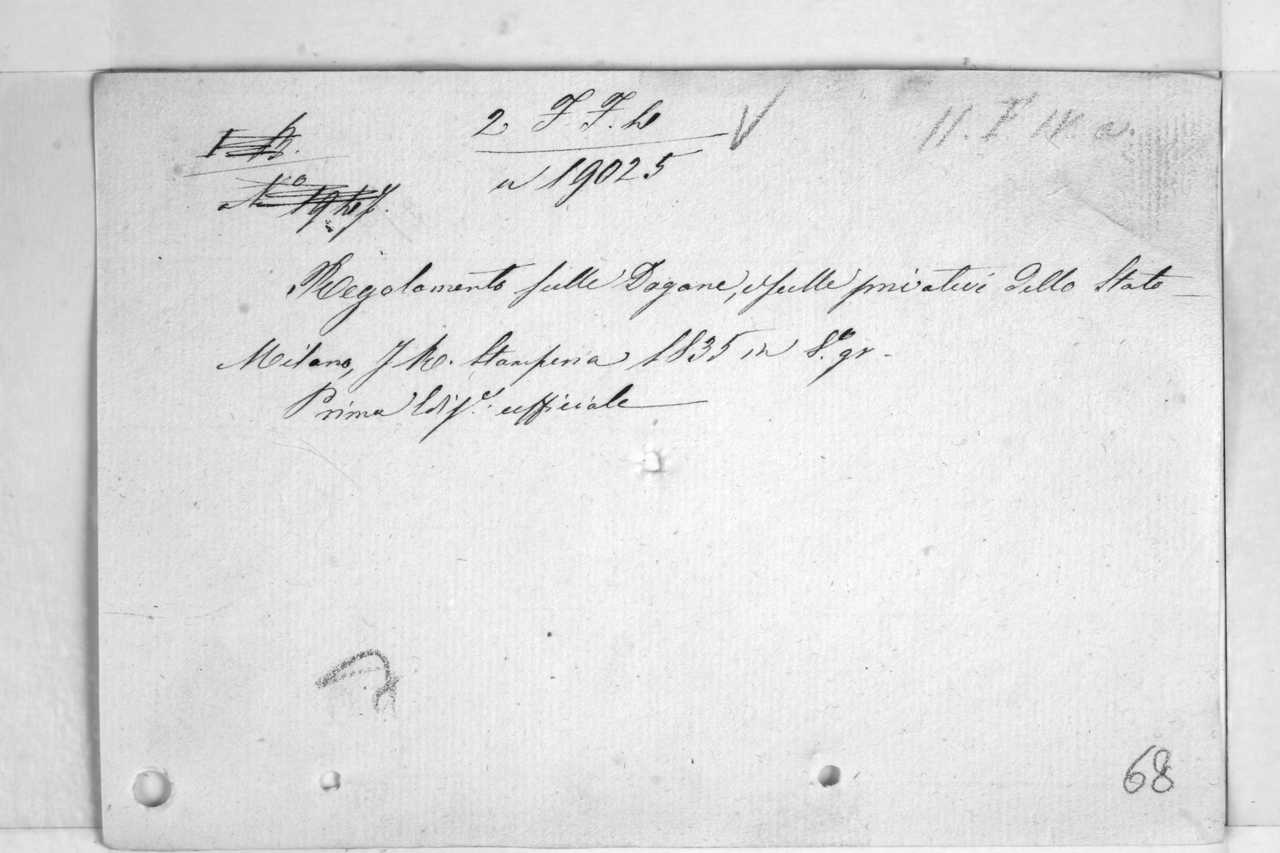 2 F. F. h
19025
Regolamento sulle Dogane, e sulle privative dello Stato
Milano, I. R. Stamperia 1835 in 8.º gr.
Prima Ediz.e ufficiale
68